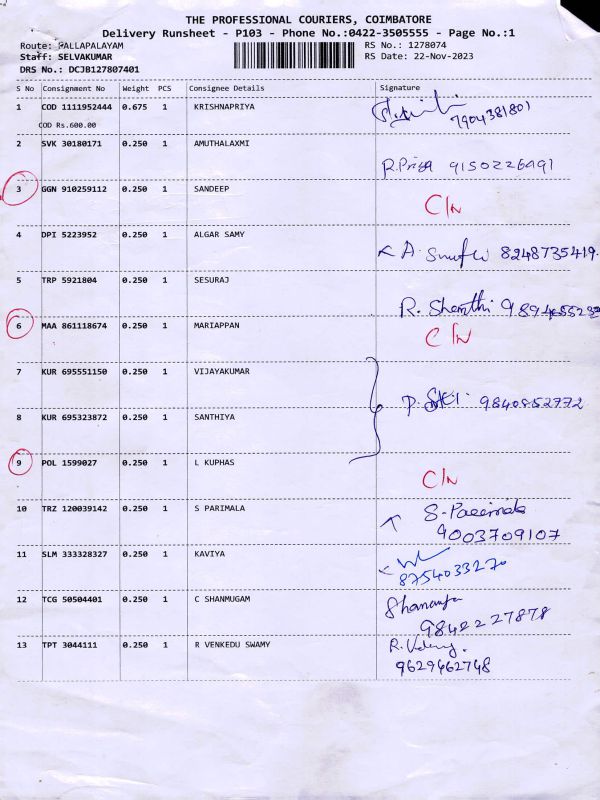 THE PROFESSIONAL COURIERS, COIMBATORE
Delivery Runsheet - P103 - Phone No.:0422-3505555 - Page No.:1
Route: PALLAPALAYAM RS No.: 1278074
Staff: SELVAKUMAR RS Date: 22-Nov-2023
DRS No.: DCJB127807401
S No Consignment No Weight PCS Consignee Details Signature
1 COD 1111952444 0.675 1 KRISHNAPRIYA
COD Rs.600.00 7904381801
2 SVK 30180171 0.250 1 AMUTHALAXMI
R.Priya 9150226491
3 GGN 910259112 0.250 1 SANDEEP
C/N
4 DPI 5223952 0.250 1 ALGAR SAMY A. 8248735419.
5 TRP 5921804 0.250 1 SESURAJ
R. Shanthi
6 MAA 861118674 0.250 1 MARIAPPAN
C/N
7 KUR 695551150 0.250 1 VIJAYAKUMAR
P. 9840852772
8 KUR 695323872 0.250 1 SANTHIYA
9 POL 1599027 0.250 1 L KUPHAS
C/N
10 TRZ 120039142 0.250 1 S PARIMALA S. Parimala
9003709107
11 SLM 333328327 0.250 1 KAVIYA
8754033270
12 TCG 50504401 0.250 1 C SHANMUGAM
9842227878
13 TPT 3044111 0.250 1 R VENKEDU SWAMY R.
9629462748